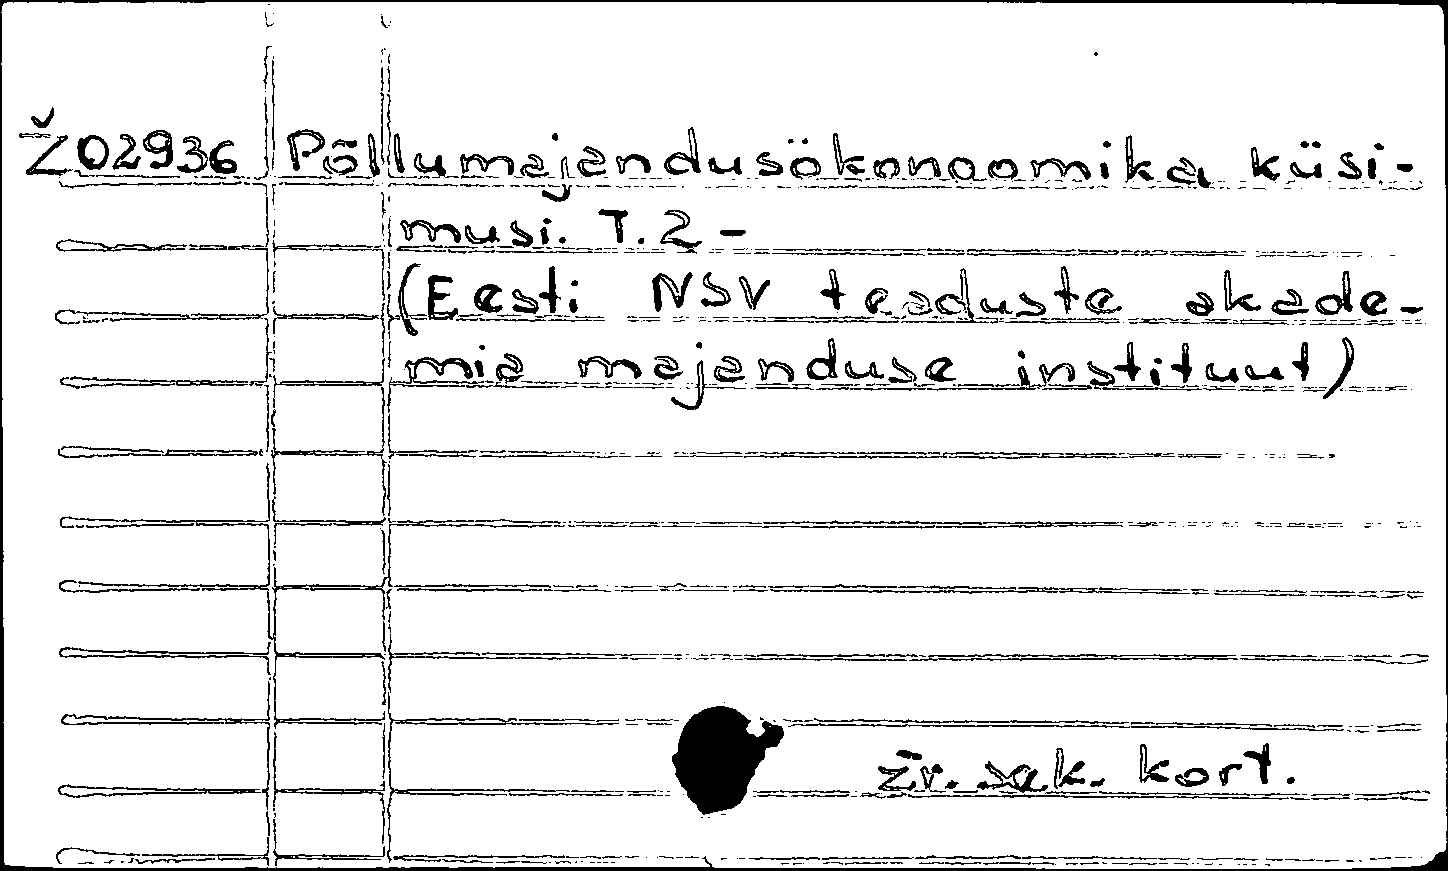 Ž02936 Põllumajandusökonoomika küsi-
musi. T. 2 -
(Eesti NSV teaduste akade-
mia majanduse instituut)
Žr. sak. kort.